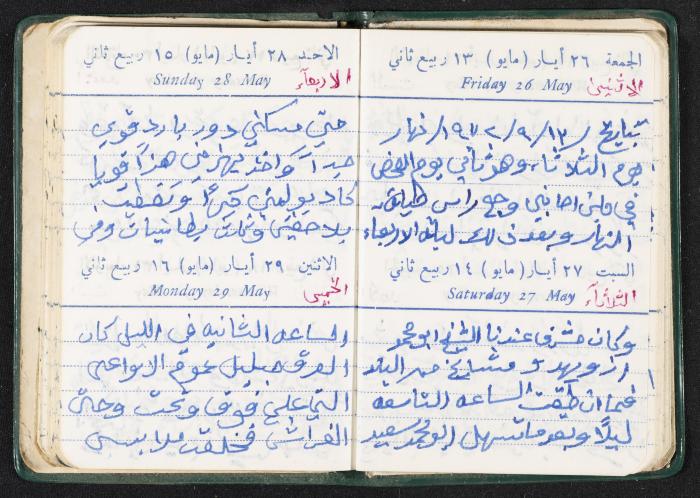 الجمعة ٢٦ أيـار (مايو) ١٣ ربيع ثاني
Friday 26 May
الاثنين
بتاريخ ١٩٧٢/٩/١٣ نهار
يوم الثلاثاء وهو ثاني يوم
في اصابني وجع راس طيلة
النهار وبعد ذلك ليلة الاربعاء
السبت ٢٧ أيـار (مايو) ١٤ ربيع ثاني
Saturday 27 May
الثلاثاء
وكان مشرف عندنا الشيخ ابو محمد
و مشايخ من البلد
فما ان دقت الساعه التاسعه
ليلاً وبعد ما تسهل ابو محمد سعيد
الاحـد ٢٨ أيـار (مايو) ١٥ ربيع ثاني
Sunday 28 May
الاربعاء
حتى مسكني دور بارد قوي
جداً واخذ يهزني هزاً قويا
كاد يولمني كثيراً وتغطيت
بلاحفتي وثلاث بطانيات وفي
الاثنين ٢٩ أيـار (مايو) ١٦ ربيع ثاني
Monday 29 May
الخميس
الساعه الثانيه في الليل كان
العرق مبلل جميع الاواعي
التي علي فوق وتحت وحتى
الفراش فخلعت ملابسي